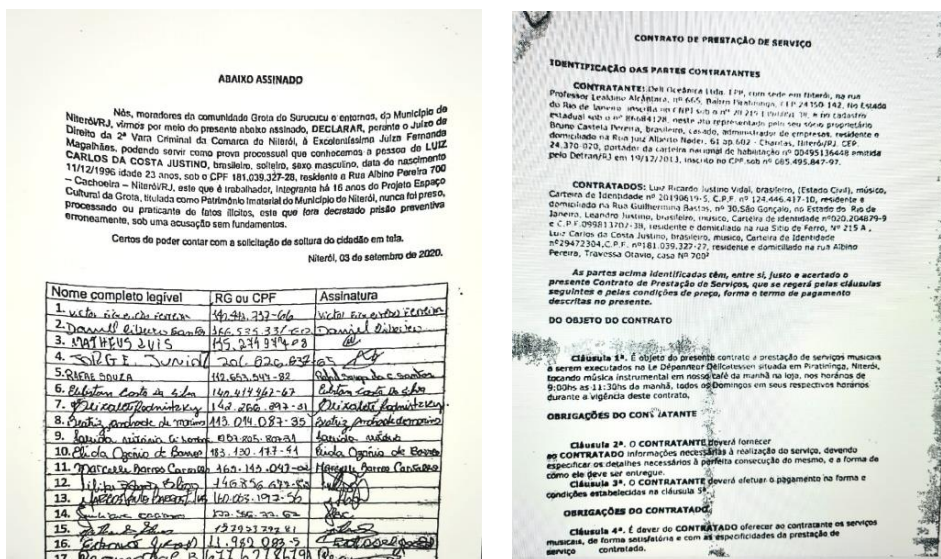 ABAIXO ASSINADO
Nós, moradores da comunidade Grota do Surucucu e entornos, do Município de
Niterói/RJ, virmos por meio do presente abaixo assinado, DECLARAR, perante o Juízo de
Direito da 2ª Vara Criminal da Comarca de Niterói, à Excelentíssima Juíza Fernanda
Magalhães, podendo servir como prova processual que conhecemos a pessoa de LUIZ
CARLOS DA COSTA JUSTINO, brasileiro, solteiro, sexo masculino, data de nascimento
11/12/1996 idade 23 anos, sob o CPF 181.039.327-28, residente a Rua Albino Pereira 700
– Cachoeira – Niterói/RJ, este que é trabalhador, integrante há 16 anos do Projeto Espaço
Cultural da Grota, titulada como Patrimônio Imaterial do Município de Niterói, nunca foi preso,
processado ou praticante de fatos ilícitos, este que fora decretado prisão preventiva
erroneamente, sob uma acusação sem fundamentos.
Certos de poder contar com a solicitação de soltura do cidadão em tela.
Niterói, 03 de setembro de 2020.
Nome completo legível RG ou CPF Assinatura
1. Victor Ferreira
2.
3. MATHEUS LUIS
4. JORGE Junior
5. RAFAE SOUZA 112.653.547-82
6. Costa da Silva
7.
8. Beatriz Andrade de 115.014.087-35 Beatriz
9.
10. Elida Ozório de Barros 183.130.177-91 Elida Ozório de Barros
11. Marcelli Barros
12.
13. 160.063.197-56
14.
15.
16.
17
CONTRATO DE PRESTAÇÃO DE SERVIÇO
IDENTIFICAÇÃO DAS PARTES CONTRATANTES
CONTRATANTE: Deli Oceânica Ltda. EPP, com sede em Niterói, na rua
Professor Lealdino Alcântara, nº 665, Bairro Piratininga, CEP 24.350-142, No Estado
do Rio de Janeiro, inscrita no CNPJ sob o nº e no cadastro
estadual sob o nº 86684128, neste ato representada pelo seu sócio proprietário
Bruno Castela Pereira, brasileiro, casado, administrador de empresas, residente e
domiciliado na Rua Juiz Alberto Nader, 61 ap.602 - Charitas, Niterói/RJ, CEP.
24.370-020, portador da carteira nacional de habilitação nº 00495136448 emitida
pelo Detran/RJ em 19/12/2013, inscrito no CPF sob nº 085.495.847-97.
CONTRATADOS: Luiz Ricardo Justino Vidal, brasileiro, (Estado Civil), músico,
Carteira de Identidade nº 20190619-5, C.P.F. nº 124.446.417-10, residente e
domiciliado na Rua Guilhermina Bastos, nº 30,São Gonçalo, no Estado do Rio de
Janeiro, Leandro Justino, brasileiro, musico, Carteira de identidade nº020.204879-9
e C.P.F.099813707-38, residente e domiciliado na rua Sitio de Ferro, Nº 215 A ,
Luiz Carlos da Costa Justino, brasileiro, musico, Carteira de Identidade
nº29472304,C.P.F. nº181.039.327-27, residente e domiciliado na rua Albino
Pereira, Travessa Otavio, casa Nº 700²
As partes acima identificadas têm, entre si, justo e acertado o
presente Contrato de Prestação de Serviços, que se regerá pelas cláusulas
seguintes e pelas condições de preço, forma e termo de pagamento
descritas no presente.
DO OBJETO DO CONTRATO
Cláusula 1ª. É objeto do presente contrato a prestação de serviços musicais
a serem executados na Le Dépanneur Delicatessen situada em Piratininga, Niterói,
tocando música instrumental em nosso café da manhã na loja, nos horários de
9:00hs as 11:30hs da manhã, todos os Domingos em seus respectivos horários
durante a vigência deste contrato,
OBRIGAÇÕES DO CONTRATANTE
Cláusula 2ª. O CONTRATANTE deverá fornecer
ao CONTRATADO informações necessárias à realização do serviço, devendo
especificar os detalhes necessários à perfeita consecução do mesmo, e a forma de
como ele deve ser entregue.
Cláusula 3ª. O CONTRATANTE deverá efetuar o pagamento na forma e
condições estabelecidas na cláusula 5ª.
OBRIGAÇÕES DO CONTRATADO
Cláusula 4ª. É dever do CONTRATADO oferecer ao contratante os serviços
musicais, de forma satisfatória e com as especificidades da prestação de
serviço contratado.